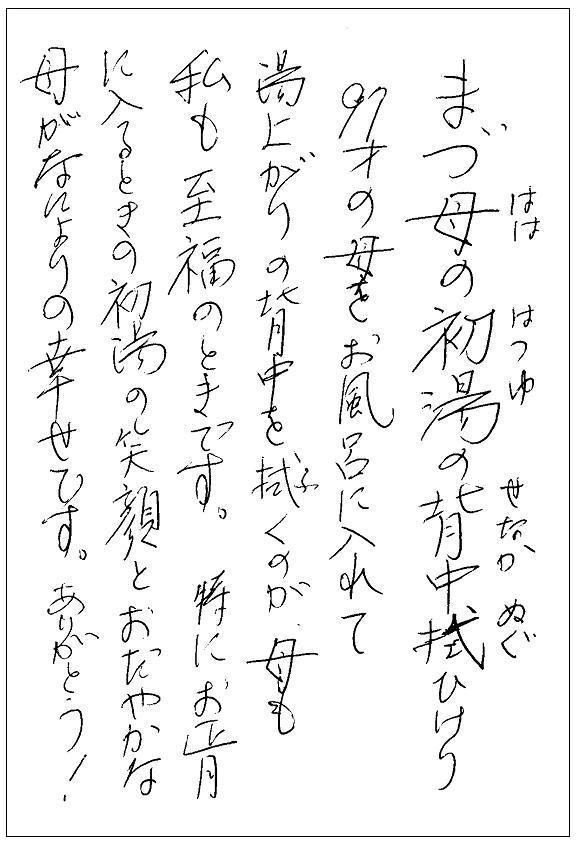 まづ母の初湯の背中拭ひけり
はは はつゆ せなか ぬぐ
91才の母をお風呂に入れて
湯上がりの背中を拭くのが、母も
ふ
私も至福のときです。特にお正月
に入るときの初湯の笑顔とおだやかな
母がなによりの幸せです。ありがとう!